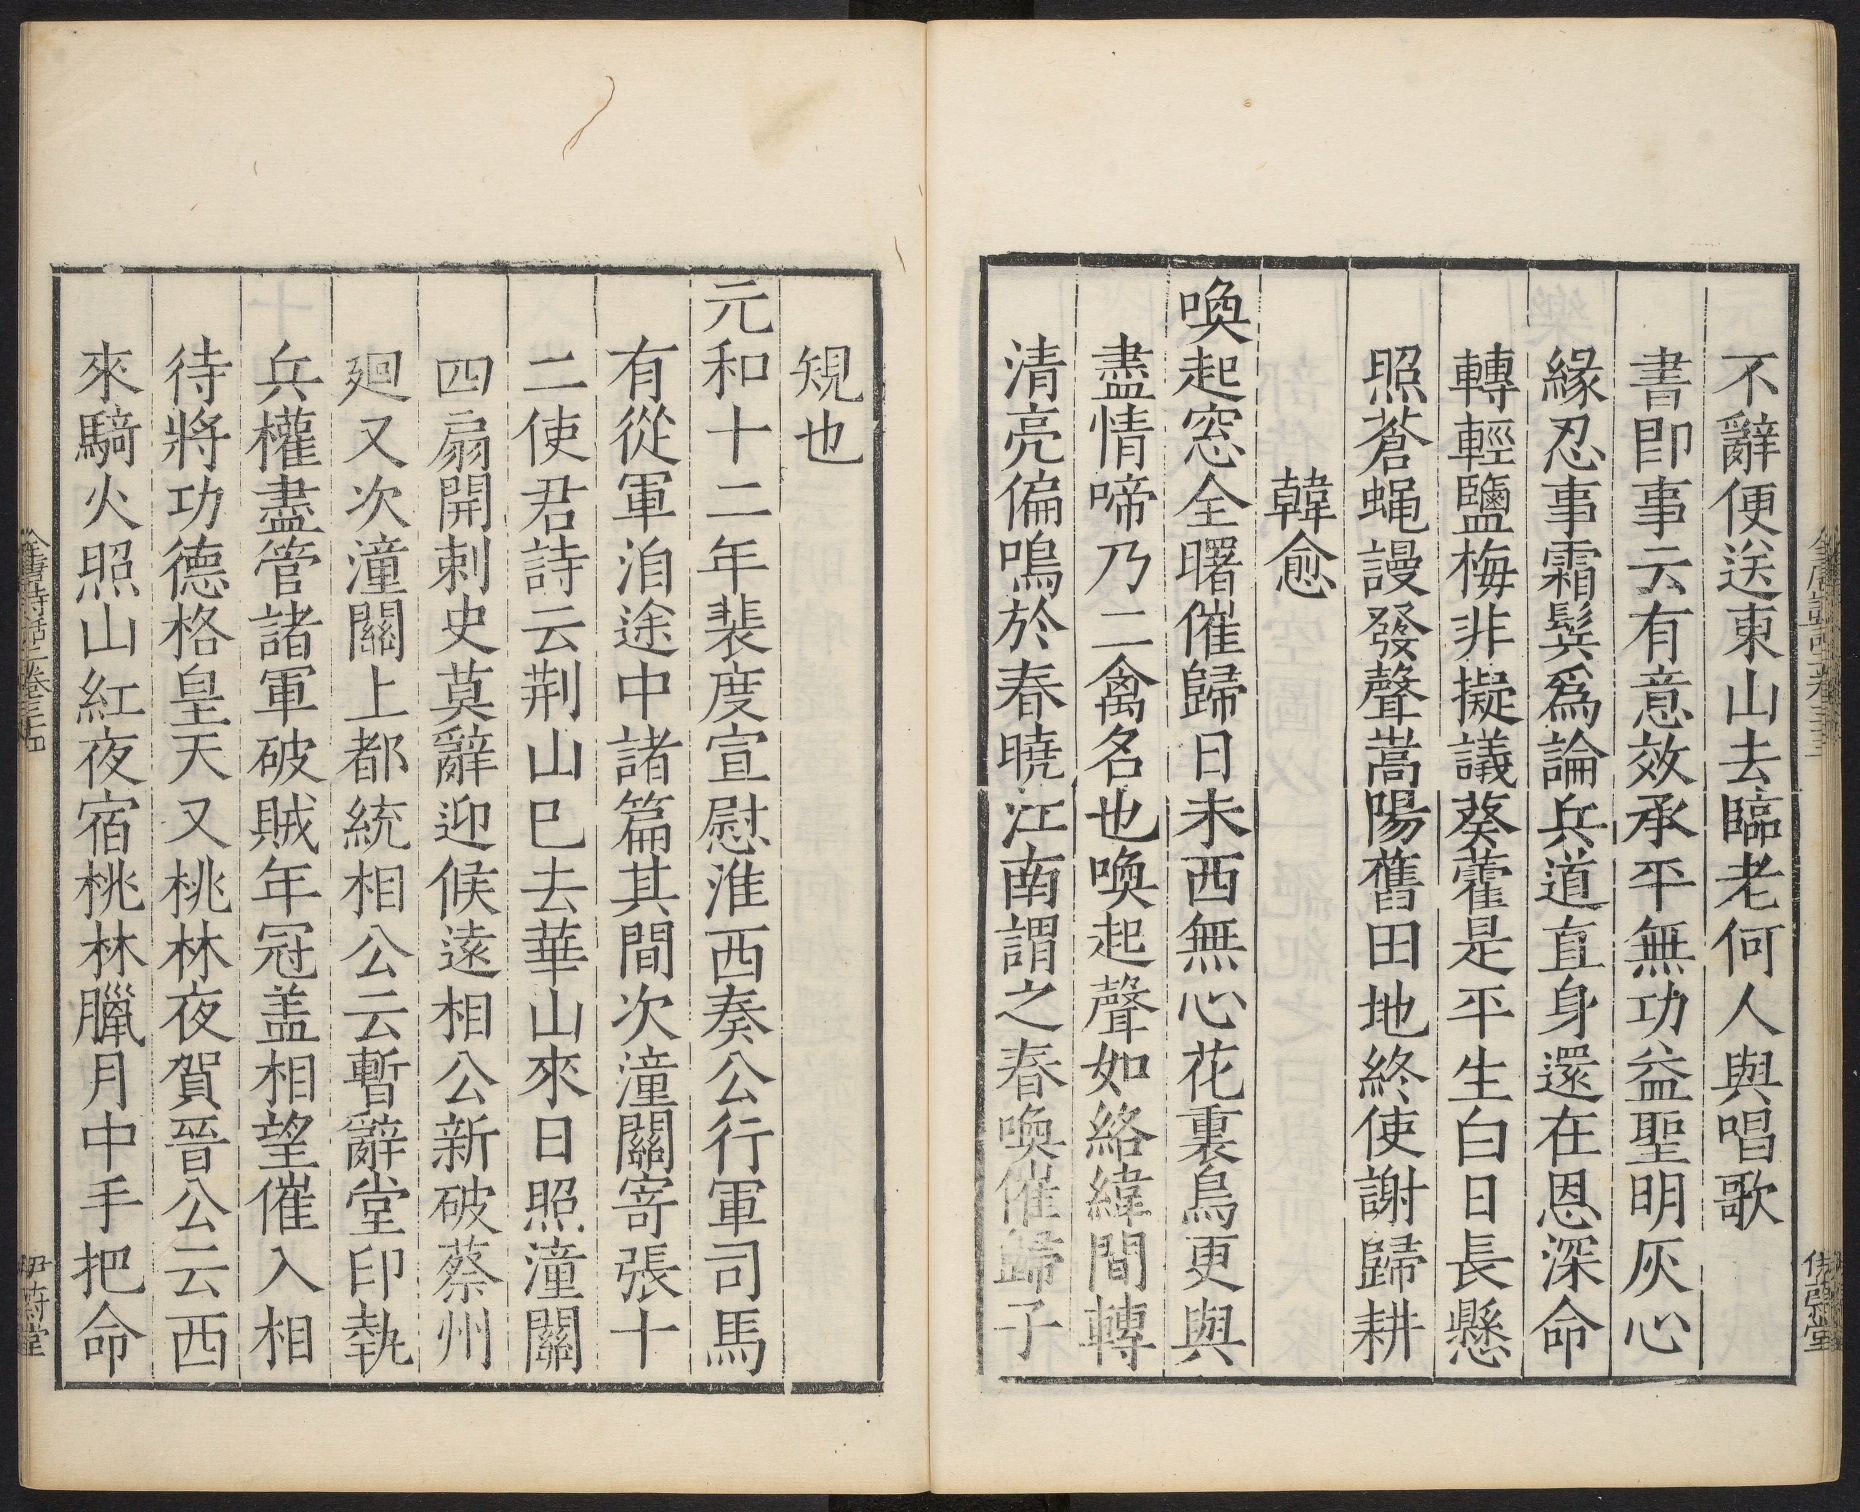 不辭便送東山去臨老何人與唱歌
書即事云有意效承平無功益聖明灰心
緣忍事霜鬂爲論兵道直身還在恩深命
轉輕鹽梅非擬議葵藿是平生白日長懸
照蒼蝇謾發聲嵩陽舊田地終使謝歸耕
韓愈
喚起窓全曙催歸日未西無心花裏鳥更與
盡情啼乃二禽名也喚起聲如絡緯間轉
清亮偏鳴於春曉江南謂之春喚催歸子
規也
元和十二年裴度宣慰淮西奏公行軍司馬
有從軍洎途中諸篇其間次潼關寄張十
二使君詩云荆山巳去華山來日照潼關
四扇開刺史莫辭迎候遠相公新破蔡州
廻又次潼關上都統相公云暫辭堂印執
兵權盡管諸軍破賊年冠盖相望催入相
待將功德格皇天又桃林夜賀晉公云西
來騎火照山紅夜宿桃林臘月中手把命